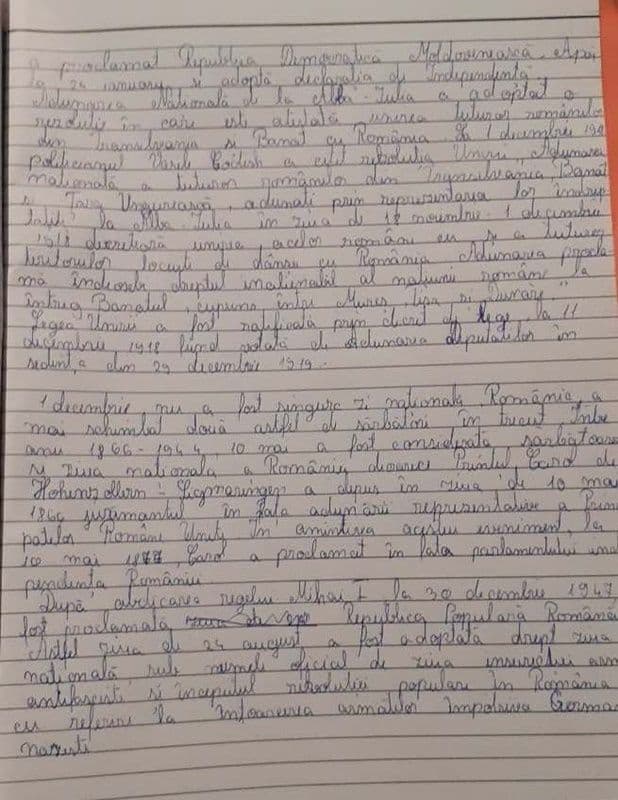 a proclamat Republica Democratică Moldovenească. Apoi,
la 24 ianuary se adoptă declarația de Independență.
Adunarea Națională de la Alba-Iulia a adoptat o
rezoluție în care este atestată unirea tuturor românilor
din Transilvania și Banat cu România. La 1 decembrie 191
politicianul Vasile Goldiș a citit rezoluția Unirii, Adunarea
națională a tuturor românilor din Transilvania, Banat
și Țara Ungurească, adunați prin reprezentanța lor îndrep
tățiți la Alba-Iulia în ziua de 18 noiembrie - 1 decembrie
1918 decretează unirea acelor români cu și a tuturor
teritoriilor locuite de dânșii cu România. Adunarea procla
mă îndeosebi dreptul inalienabil al națiunii române la
întreg Banatul, cuprins între Mureș, Tisa și Dunăre."
Legea Unirii a fost ratificată prin decret de lege, la 11
decembrie 1918 fiind votată de Adunarea deputaților în
ședința din 29 decembrie 1919.
1 decembrie nu a fost singura zi națională România, a
mai schimbat două astfel de sărbători în trecut. Între
anii 1866-1944, 10 mai a fost considerată sărbătoare
și ziua națională a României, deoarece Prințul Carol de
Hohenzollern-Sigmaringen a depus în ziua de 10 mai
1866 jurământul în fața adunării reprezentative a Prin
patelor Române Unite. În amintirea acestui eveniment, la
10 mai 1877, Carol a proclamat în fața parlamentului inde
pendența României.
După abdicarea regelui Mihai I la 30 decembrie 1947,
fost proclamată Republica Populară Română
Astfel ziua de 24 august a fost adoptată drept ziua
națională, sub numele oficial de ziua insurecției arm
antifasciste și începutul revoluției populare în România
cu referire la întoarcerea armatelor împotriva German
naziste.